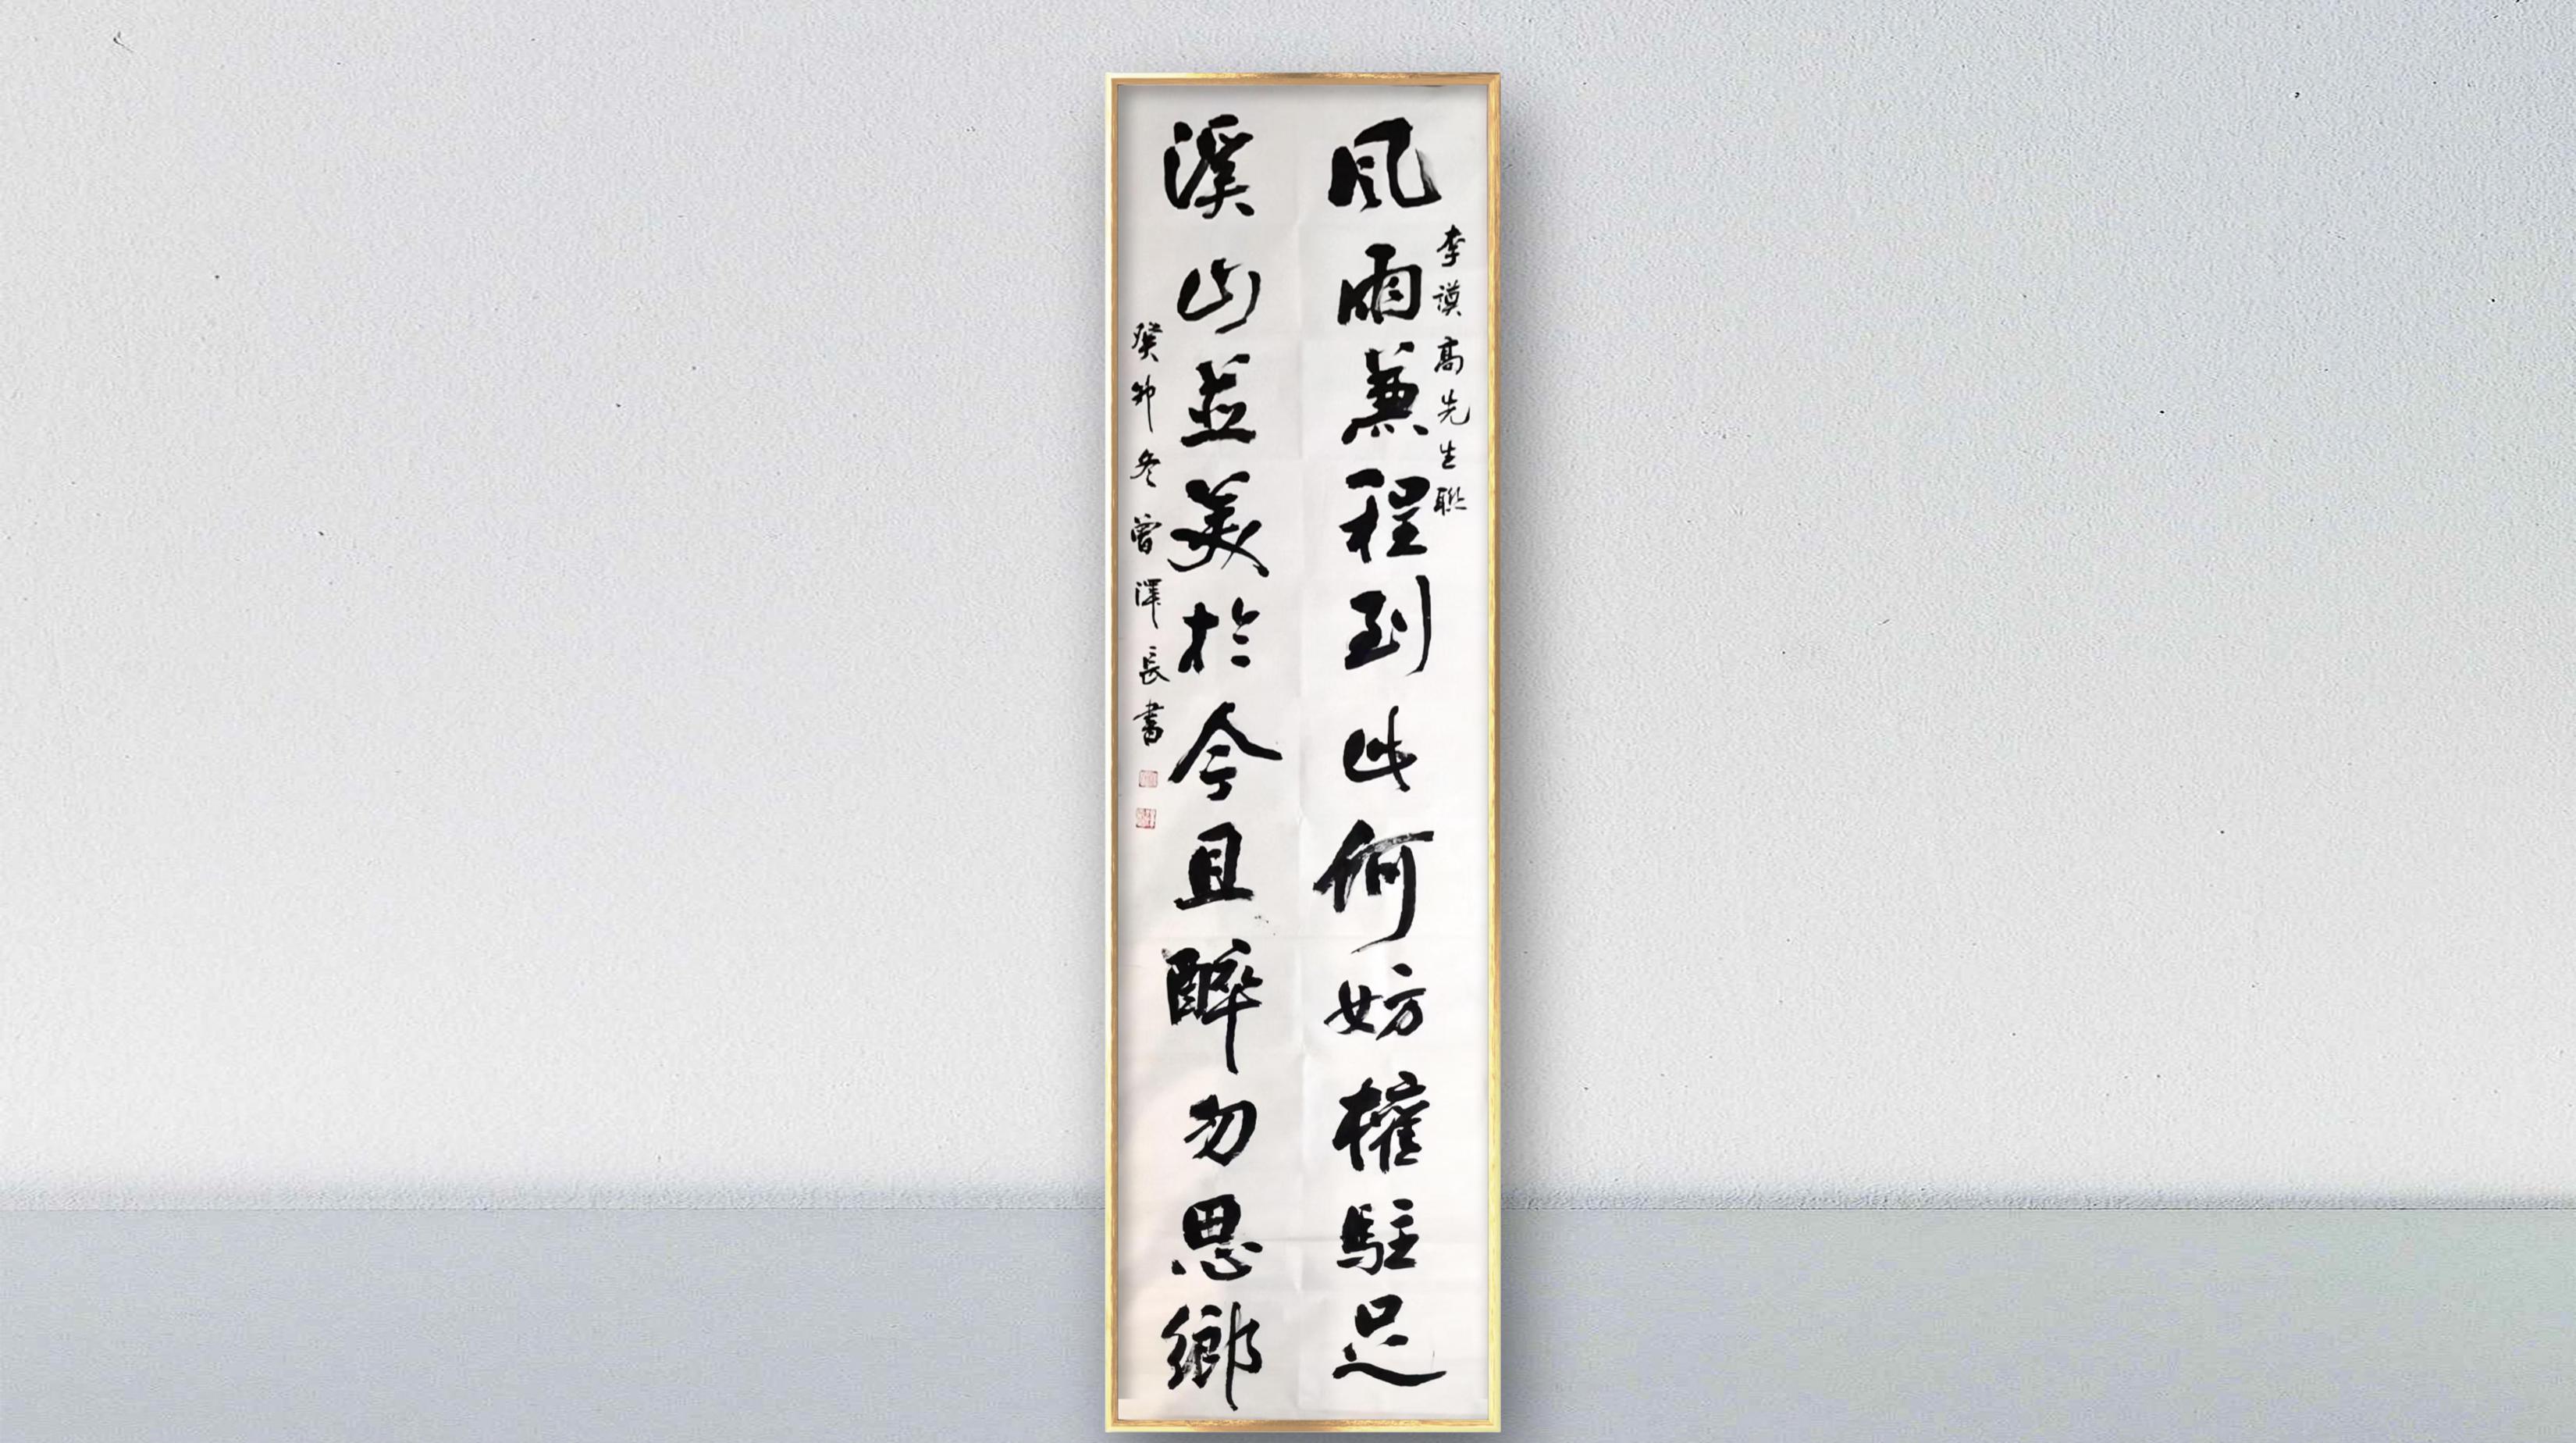 李謨高先生聯
風雨兼程到此何妨權駐足
溪山並美於今且醉勿思鄉
癸卯冬曾澤長書